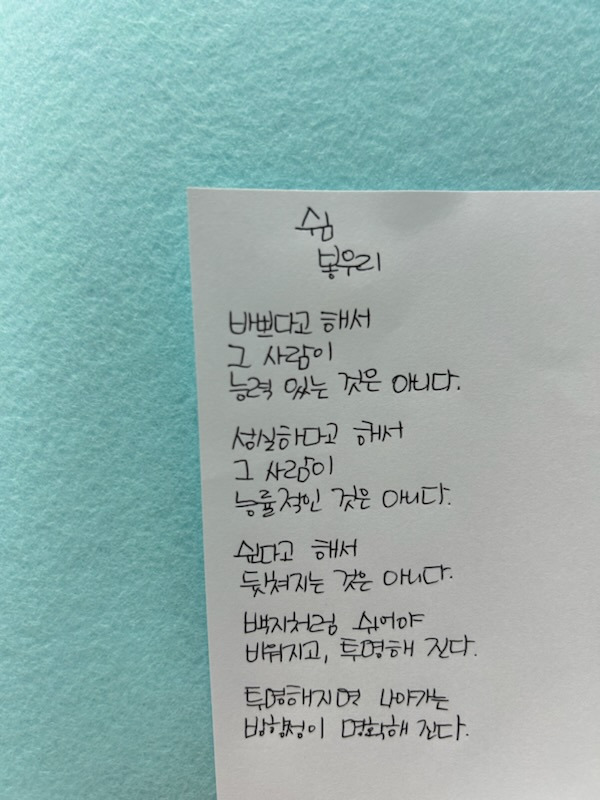 쉼
봉우리
바쁘다고 해서
그 사람이
능력 있는 것은 아니다.
성실하다고 해서
그 사람이
능률적인 것은 아니다.
쉰다고 해서
뒺쳐지는 것은 아니다.
백지처럼 쉬어야
비워지고, 투명해 진다.
투명해지면 나아가는
방향성이 명확해 진다.